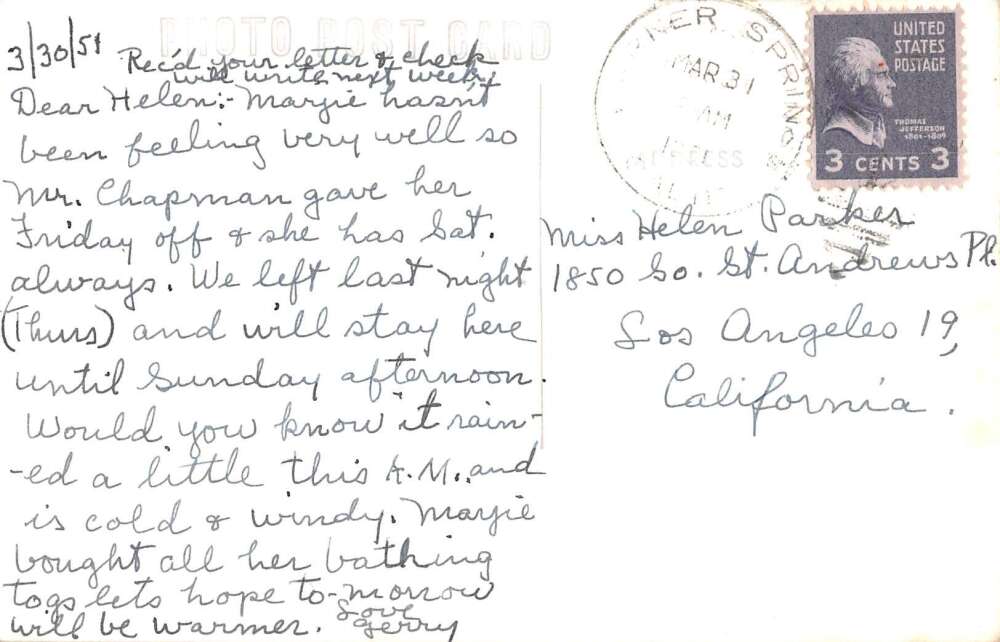 PHOTO POST CARD
3/30/51 Rec'd your letter & check
will write next week,
Dear Helen:- Marjie hasn't
been feeling very well so
Mr. Chapman gave her
Friday off & she has Sat.
always. We left last night
(Thurs) and will stay here
until Sunday afternoon.
Would you know it rain-
-ed a little this A.M. and
is cold & windy. Marjie
bought all her bathing
togs lets hope to-morrow
will be warmer. Love
Jerry
NER SPRINGS
MAR 31
AM
UNITED
STATES
POSTAGE
THOMAS
JEFFERSON
1801-1809
3 CENTS 3
Miss Helen Parker
1850 So. St. Andrews Pl.
Los Angeles 19,
California.